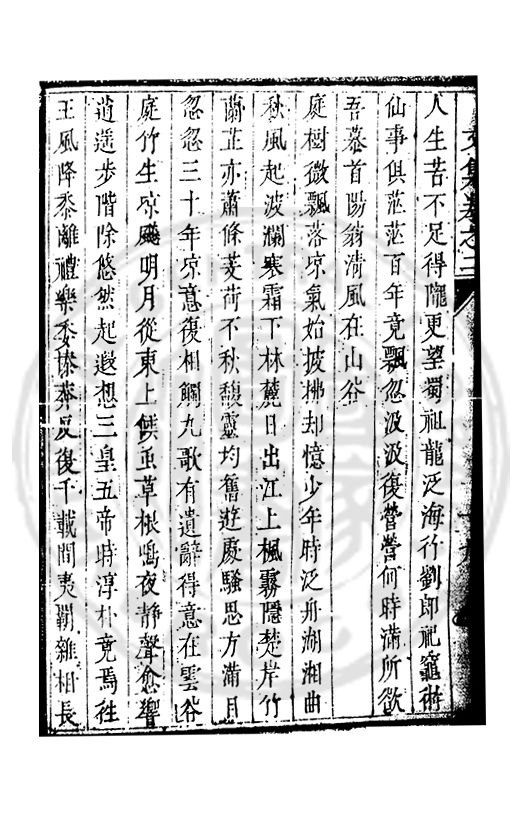 文集卷之二
人生苦不足得隴更望蜀祖龍泛海竹劉郎祀竈術
仙事俱茫茫百年竟飄忽汲汲復營營何時滿所欲
吾慕首陽翁清風在山谷
庭樹微飄落凉氣始披拂却憶少年時泛舟湖湘曲
秋風起波瀾寒霜下林麓日出江上楓霧隱楚岸竹
蘭芷亦蕭條芰荷不秋馥靈均舊遊處騷思方滿目
忽忽三十年凉意復相觸九歌有遺辭得意在雲谷
庭竹生凉飈明月從東上候虫草根鳴夜静聲愈響
逍遥步階除悠然起遐想三皇五帝時淳朴竟焉往
王風降黍離禮樂委榛莽反復千載間夷覇雜相長